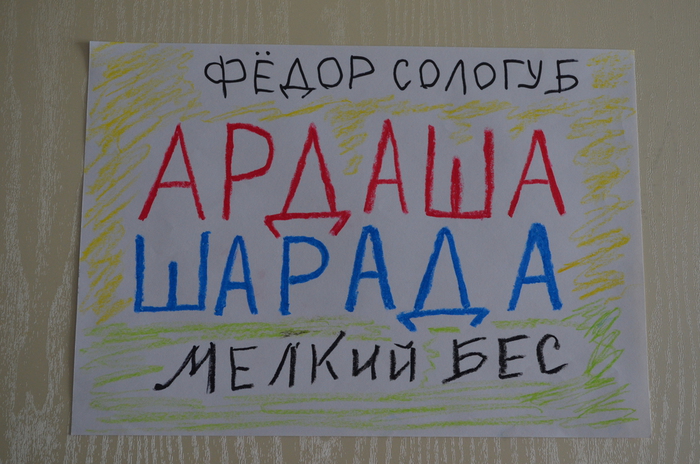 ФЁДОР СОЛОГУБ
АРДАША
ШАРАДА
МЕЛКИЙ БЕС